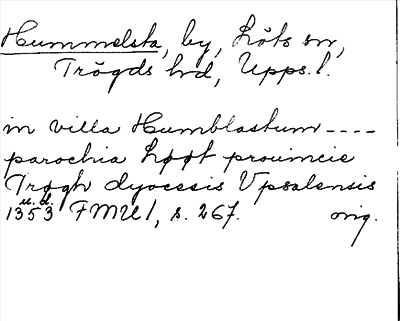 Hummelsta, by, Löts sn,
Trögds hd, Upps. l.
in villa Humblastum ----
parochia Løøt prouincie
Trøgh dyocesis Vpsalensis
u. d.
1353 FMU 1, s. 267. orig.